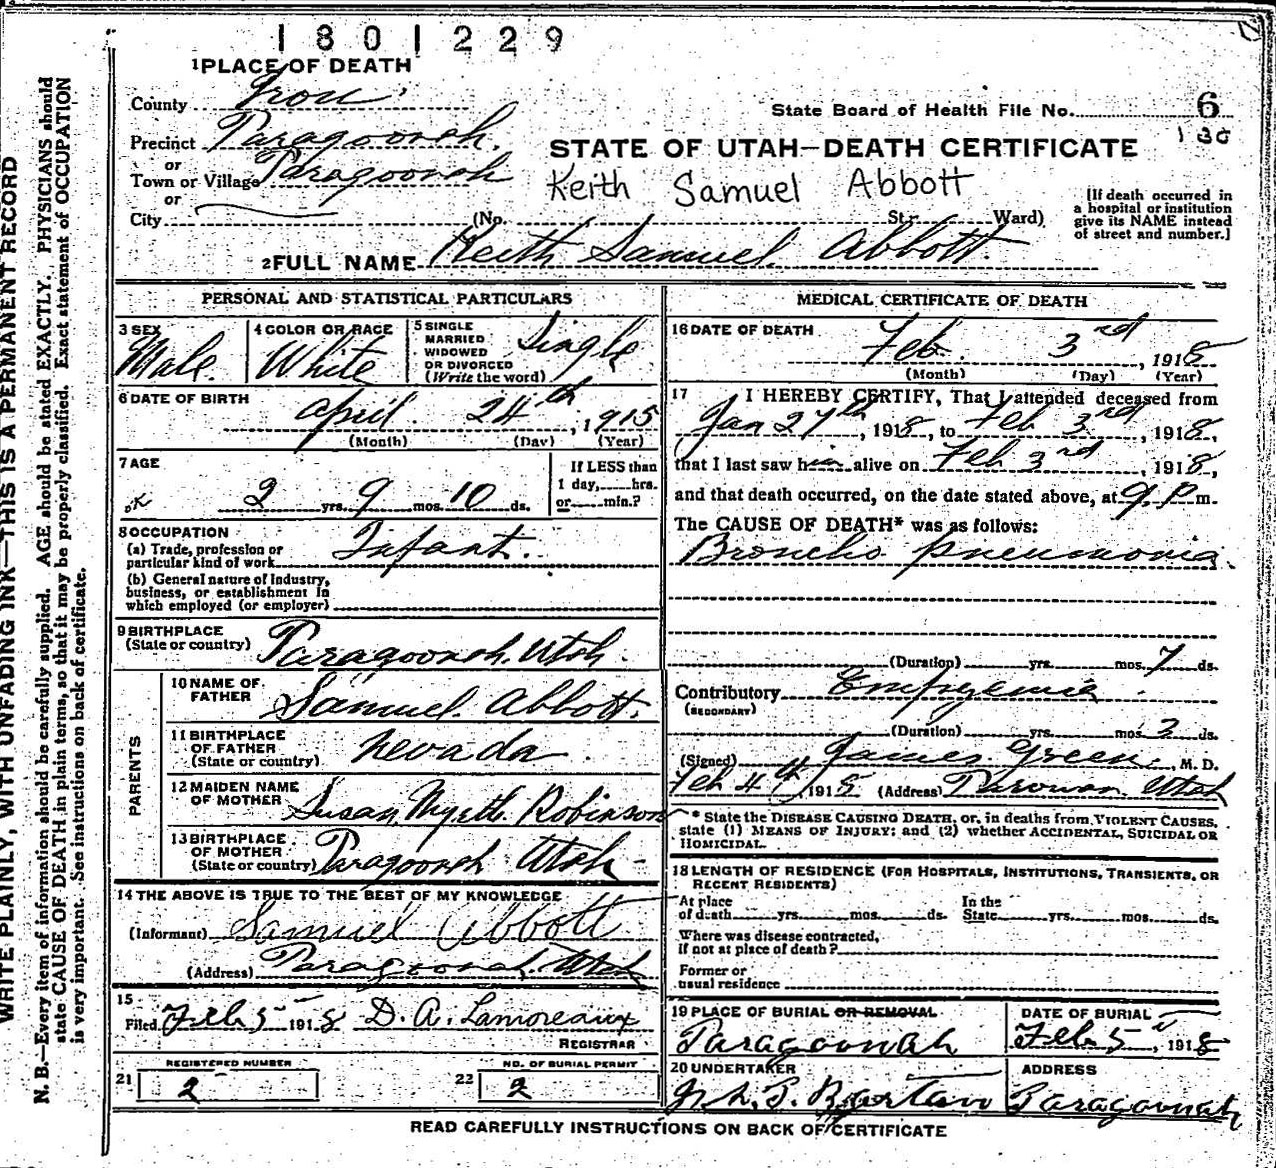 1801229
1 PLACE OF DEATH
County Iron
State Board of Health File No. 6
130
Precinct Paragoonah.
or
Town or Village Paragoonah
or
City
STATE OF UTAH—DEATH CERTIFICATE
Keith Samuel Abbott
(No. St.; Ward)
[If death occurred in
a hospital or institution
give its NAME instead
of street and number.]
2 FULL NAME Keith Samuel Abbott.
PERSONAL AND STATISTICAL PARTICULARS
3 SEX
Male.
4 COLOR OR RACE
White
5 SINGLE
MARRIED
WIDOWED
OR DIVORCED
(Write the word)
Single
6 DATE OF BIRTH
April. 24th, 1915
(Month) (Day) (Year)
7 AGE
2 yrs. 9 mos. 10 ds.
If LESS than
1 day, hrs.
or min.?
8 OCCUPATION
(a) Trade, profession or
particular kind of work Infant.
(b) General nature of Industry,
business, or establishment in
which employed (or employer)
9 BIRTHPLACE
(State or country) Paragoonah. Utah.
PARENTS
10 NAME OF
FATHER Samuel. Abbott.
11 BIRTHPLACE
OF FATHER
(State or country) Nevada
12 MAIDEN NAME
OF MOTHER Susan Myrtle Robinson
13 BIRTHPLACE
OF MOTHER
(State or country) Paragoonah Utah.
14 THE ABOVE IS TRUE TO THE BEST OF MY KNOWLEDGE
(Informant) Samuel Abbott
(Address) Paragoonah Utah
15
Filed Feb 5 1918 D. A. Lamoreaux
REGISTRAR
REGISTERED NUMBER
21 2
NO. OF BURIAL PERMIT
22 2
MEDICAL CERTIFICATE OF DEATH
16 DATE OF DEATH
Feb. 3rd, 1918
(Month) (Day) (Year)
17 I HEREBY CERTIFY, That I attended deceased from
Jan 27th, 1918, to Feb 3rd, 1918,
that I last saw him alive on Feb 3rd, 1918,
and that death occurred, on the date stated above, at 9 p m.
The CAUSE OF DEATH* was as follows:
Broncho pneumonia
(Duration) yrs. mos. 7 ds.
Contributory Empyemia
(SECONDARY)
(Duration) yrs. mos. 3 ds.
(Signed) James Green, M. D.
Feb 4th, 1918 (Address) Parowan Utah
* State the DISEASE CAUSING DEATH, or, in deaths from VIOLENT CAUSES,
state (1) MEANS OF INJURY; and (2) whether ACCIDENTAL, SUICIDAL OR
HOMICIDAL.
18 LENGTH OF RESIDENCE (FOR HOSPITALS, INSTITUTIONS, TRANSIENTS, OR
RECENT RESIDENTS)
At place
of death yrs. mos. ds.
In the
State yrs. mos. ds.
Where was disease contracted,
if not at place of death?
Former or
usual residence
19 PLACE OF BURIAL OR REMOVAL
Paragoonah
DATE OF BURIAL
Feb 5, 1918
20 UNDERTAKER
Barton
ADDRESS
Paragoonah
READ CAREFULLY INSTRUCTIONS ON BACK OF CERTIFICATE
WRITE PLAINLY, WITH UNFADING INK—THIS IS A PERMANENT RECORD
N. B.—Every item of information should be carefully supplied. AGE should be stated EXACTLY. PHYSICIANS should
state CAUSE OF DEATH in plain terms, so that it may be properly classified. Exact statement of OCCUPATION
is very important. See instructions on back of certificate.